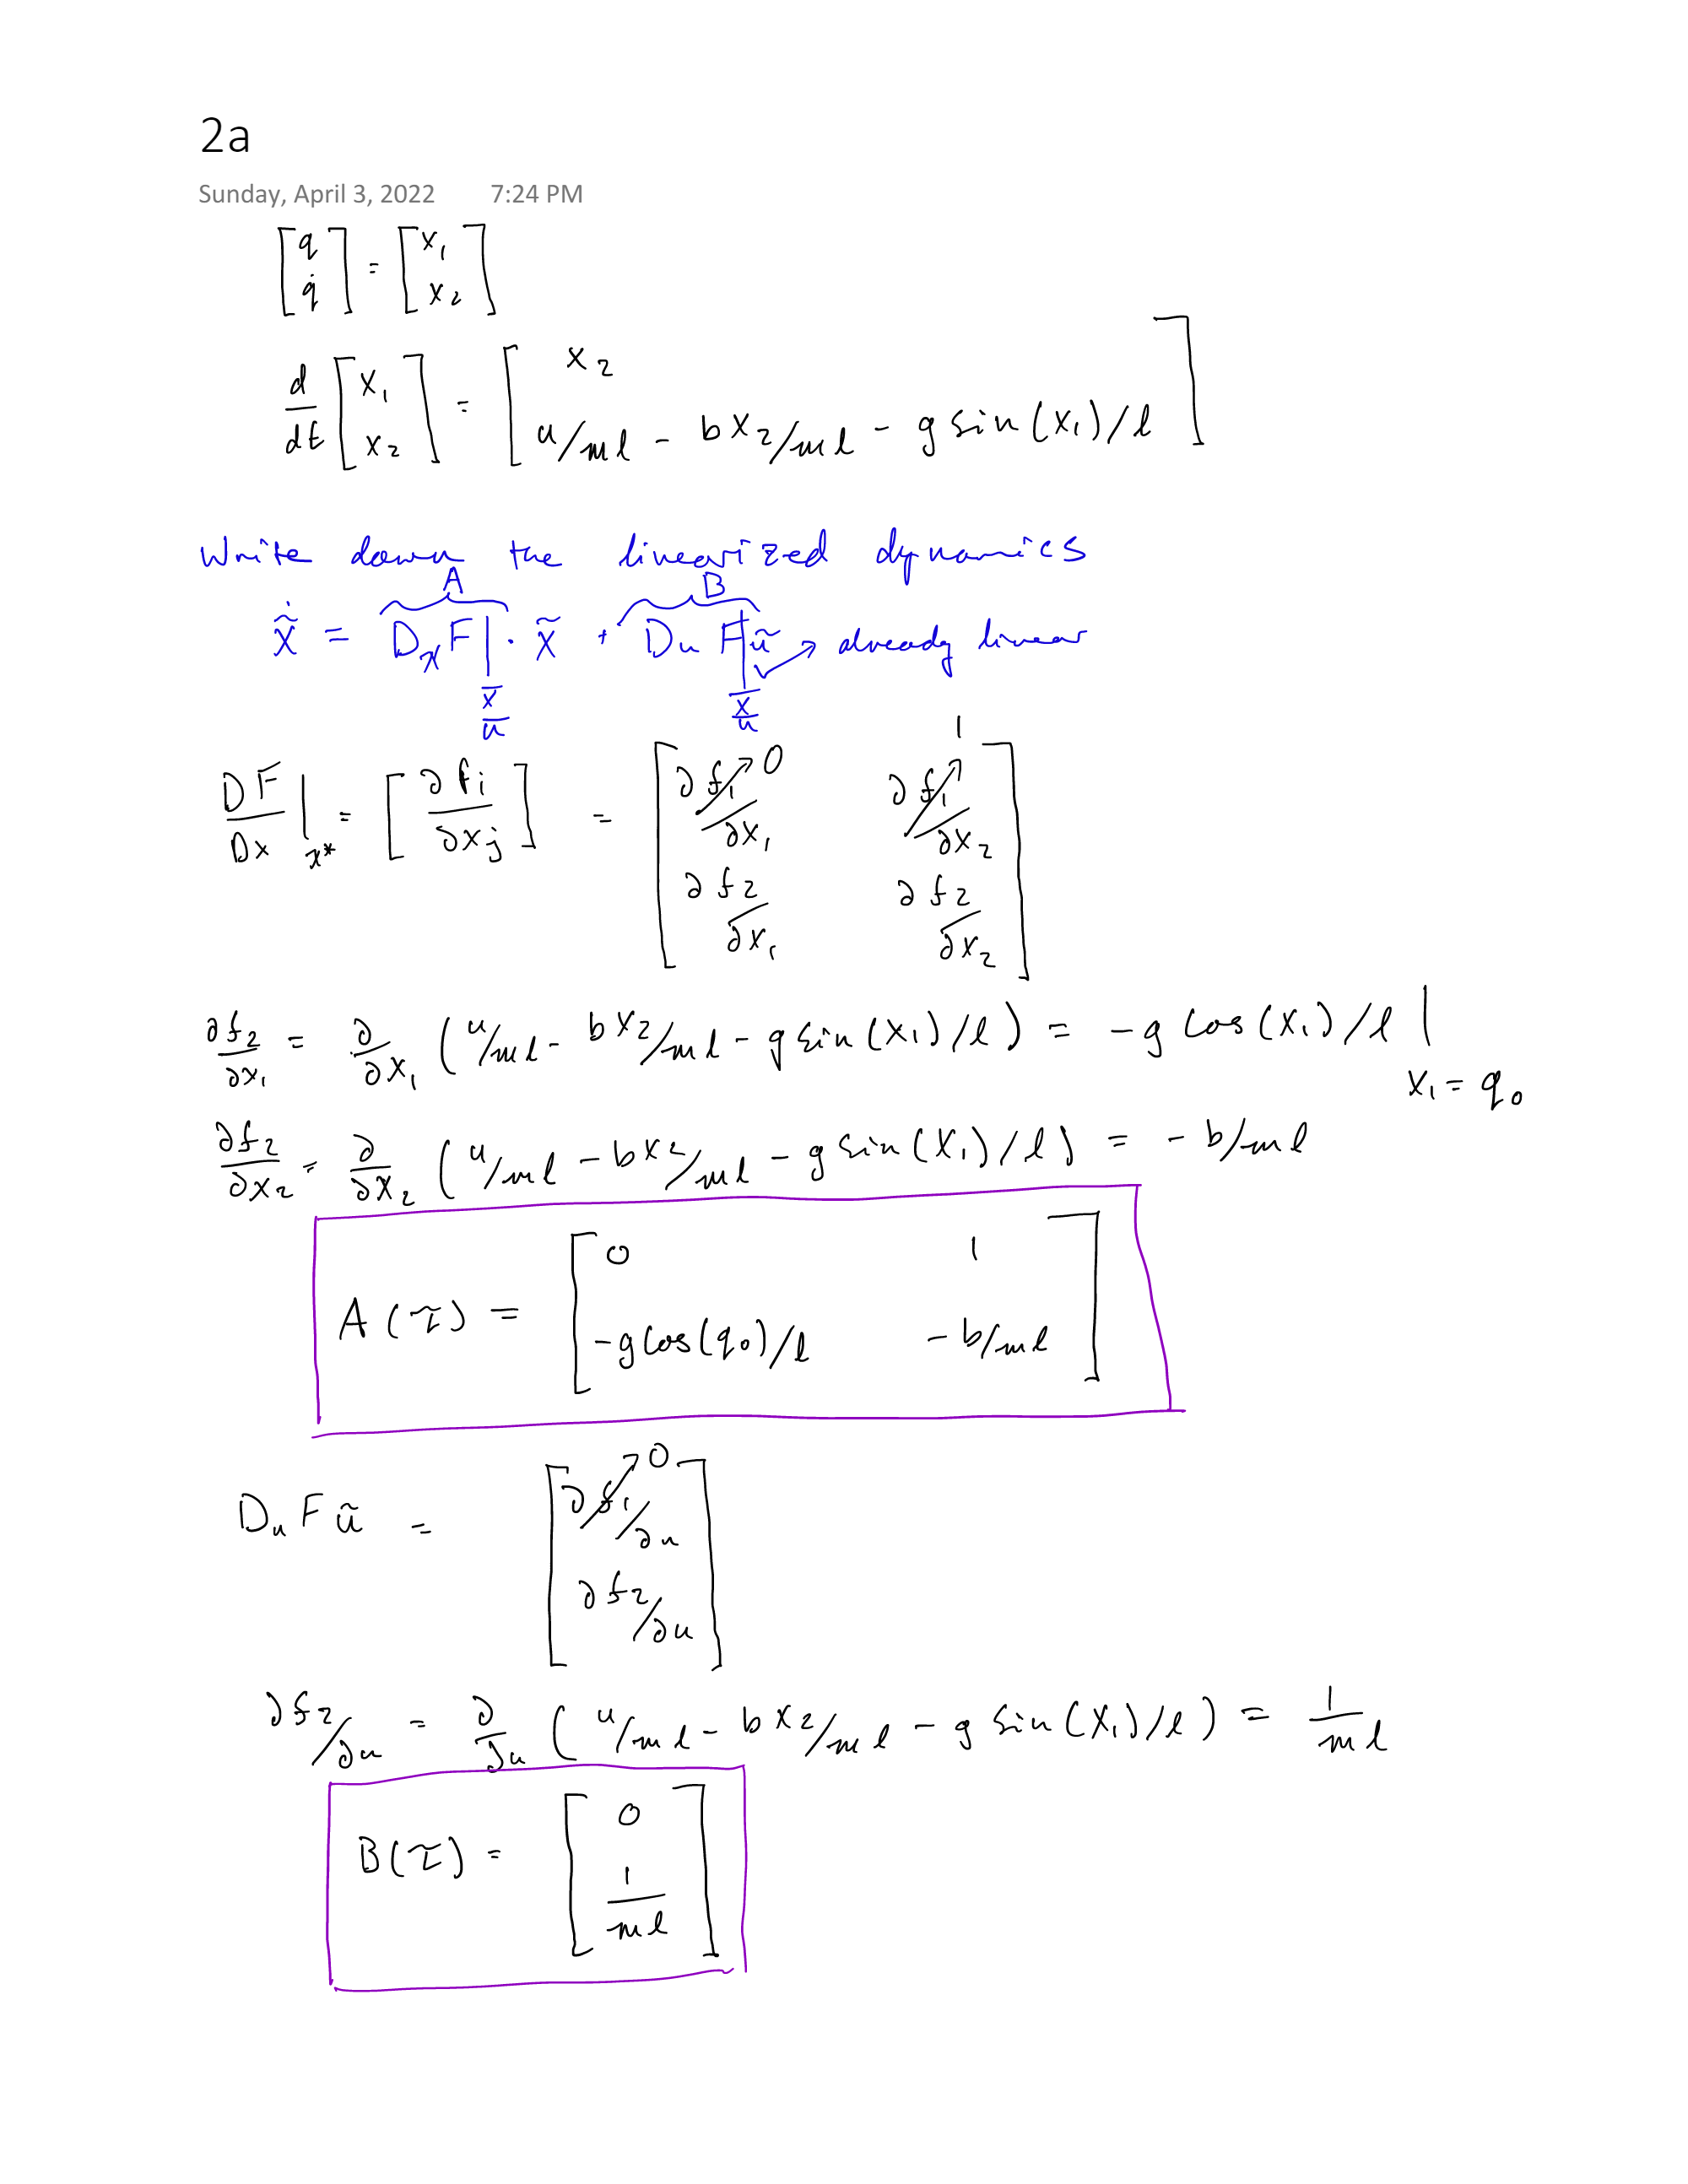 2a
Sunday, April 3, 2022 7:24 PM
[q q̇] = [x₁ x₂]
d/dt [x₁ x₂] = [x₂ u/ml - bx₂/ml - g sin(x₁)/l]
Write down the linearized dynamics
A B
x̃̇ = DₓF| · x̃ + Dᵤ F|ũ → already linear
x̄ ū x̄ ū
DF/Dx |x* = [∂fi/∂xj] = [∂f₁/∂x₁ → 0 ∂f₁/∂x₂ → 1 ∂f₂/∂x₁ ∂f₂/∂x₂]
∂f₂/∂x₁ = ∂/∂x₁ (u/ml - bx₂/ml - g sin(x₁)/l) = -g cos(x₁)/l |x₁ = q₀
∂f₂/∂x₂ = ∂/∂x₂ (u/ml - bx₂/ml - g sin(x₁)/l) = - b/ml
A(τ) = [0 1 -g cos(q₀)/l -b/ml]
Dᵤ F ũ = [∂f₁/∂u → 0 ∂f₂/∂u]
∂f₂/∂u = ∂/∂u (u/ml - bx₂/ml - g sin(x₁)/l) = 1/ml
B(τ) = [0 1/ml]